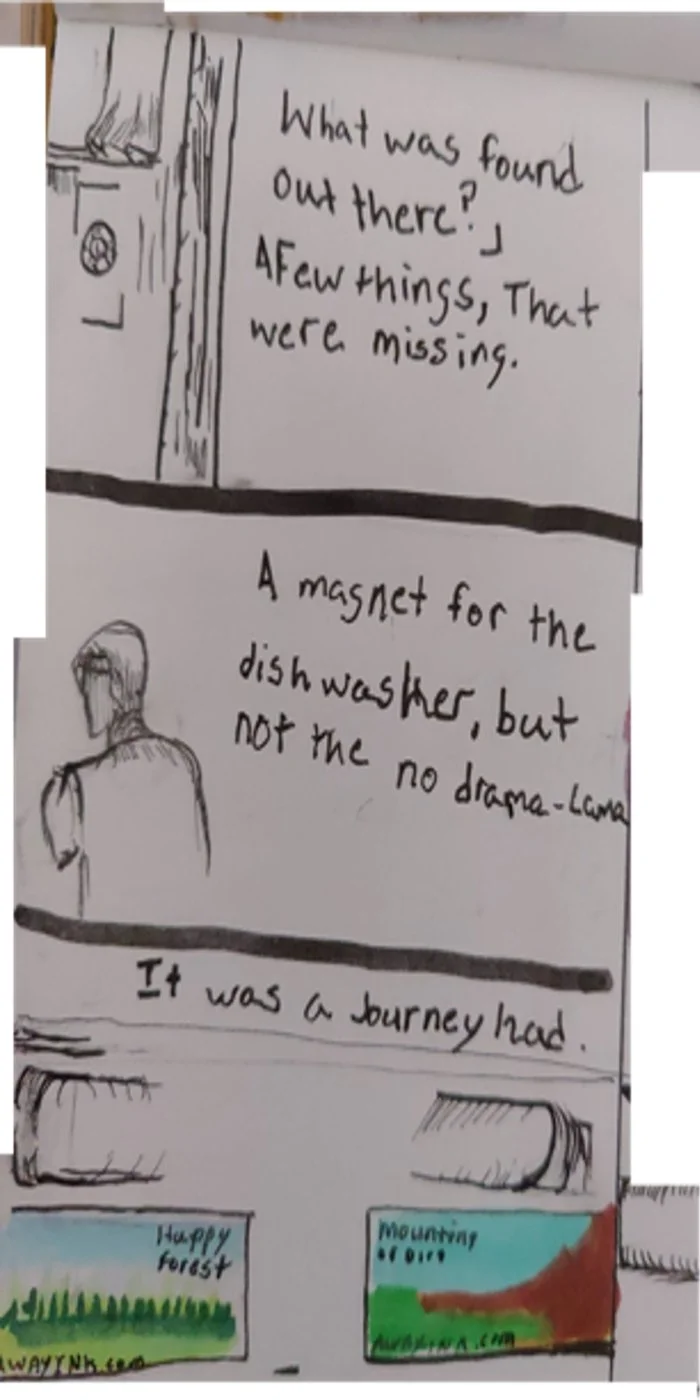 What was found
out there?
A Few things, That
were missing.
A magnet for the
dishwasher, but
not the no drama-Lama
It was a Journey had.
Happy
forest
WAYINK.com
Mounting
of Dirt
AWAYINK.com